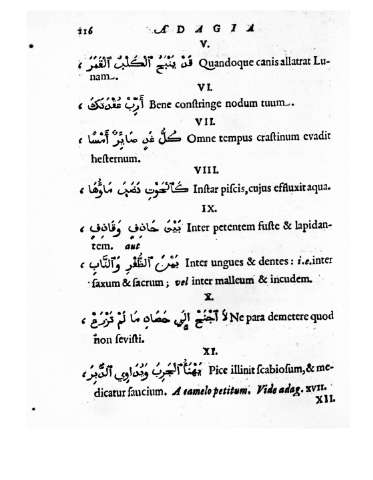 216 ADAGIA
V.
قَدْ يَنْبَحُ ٱلْكَلْبُ ٱلْقَمَرَ ، Quandoque canis allatrat Lu-
nam.
VI.
أَرِّبْ عُقْدَتَكَ ، Bene constringe nodum tuum.
VII.
كُلُّ غَدٍ صَايِرٌ أَمْسًا ، Omne tempus crastinum evadit
hesternum.
VIII.
كَٱلْحُوتِ نَضَبَ مَاوُهَا ، Instar piscis, cujus effluxit aqua.
IX.
بَيْنَ حَاذِفٍ وَقَاذِفٍ ، Inter petentem fuste & lapidan-
tem. aut
بَيْنَ ٱلظُّفْرِ وَٱلنَّابِ ، Inter ungues & dentes: i.e. inter
saxum & sacrum; vel inter malleum & incudem.
X.
لَا تَجْنَحْ إِلَي حَصَادِ مَا لَمْ تَزْرَعْ ، Ne para demetere quod
non sevisti.
XI.
يَهْنَأُ ٱلْجَرِبَ وَيُدَاوِي ٱلدَّبِرَ ، Pice illinit scabiosum, & me-
dicatur saucium. A camelo petitum. Vide adag. XVII.
XII.